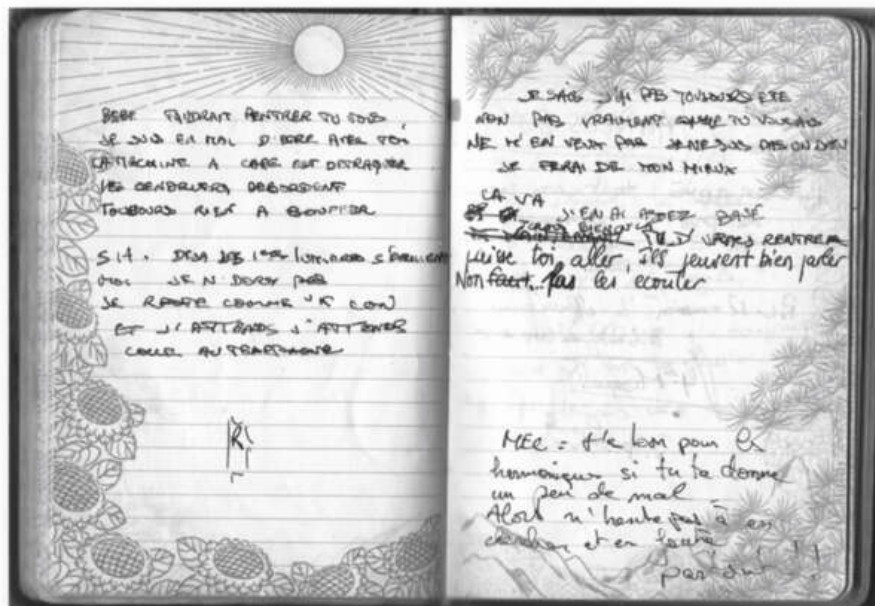 BEBE FAUDRAIT RENTRER TU SAIS
JE SUIS EN MAL D'ETRE AVEC TOI
LA MACHINE A CAFE EST DETRAQUEE
LES CENDRIERS DEBORDENT
TOUJOURS RIEN A BOUFFER
5 H. DEJA LES 1ers LUMIERES S'EVEILLENT
MOI JE N'DORS PAS
JE RESTE COMME UN CON
ET J'ATTENDS J'ATTENDS
COLLE AU TELEPHONE
R
JE SAIS J'AI PAS TOUJOURS ETE
NON PAS VRAIMENT COMME TU VOULAIS
NE M'EN VEUX PAS JE NE SUIS PAS UN DIEU
JE FERAI DE MON MIEUX
CA VA
J'EN AI ASSEZ BAVÉ
TU D'VRAIS RENTRER
laisse toi aller, ils peuvent bien parler
Non faut pas les ecouter
MEC = t'e bon pour les
harmoniques si tu te donne
un peu de mal
Alors n'hesite pas à en
chercher et en foutre
partout !!